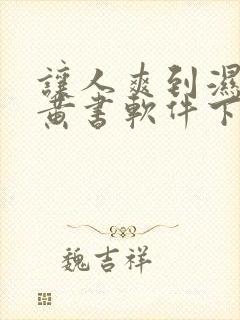 讓人爽到濕
黃書軟件下
魏吉祥